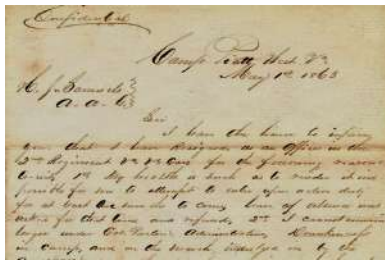 Confidential
Camp Piatt, West Va
May 1st 1863
H. J. Samuels
A. A. G.
Sir
I have the honor to inform
you that I have resigned as an officer in the
2nd Regiment Va Vo Cav for the following reasons
to wit, 1st My health is such as to render it im
possible for me to attempt to enter upon active duty
for at least one month to come, leave of absence was
asked for that time and refused, 2nd I cannot remain
longer under Col Administration, Drunkenness
in camp, and on the march, indulged in by the